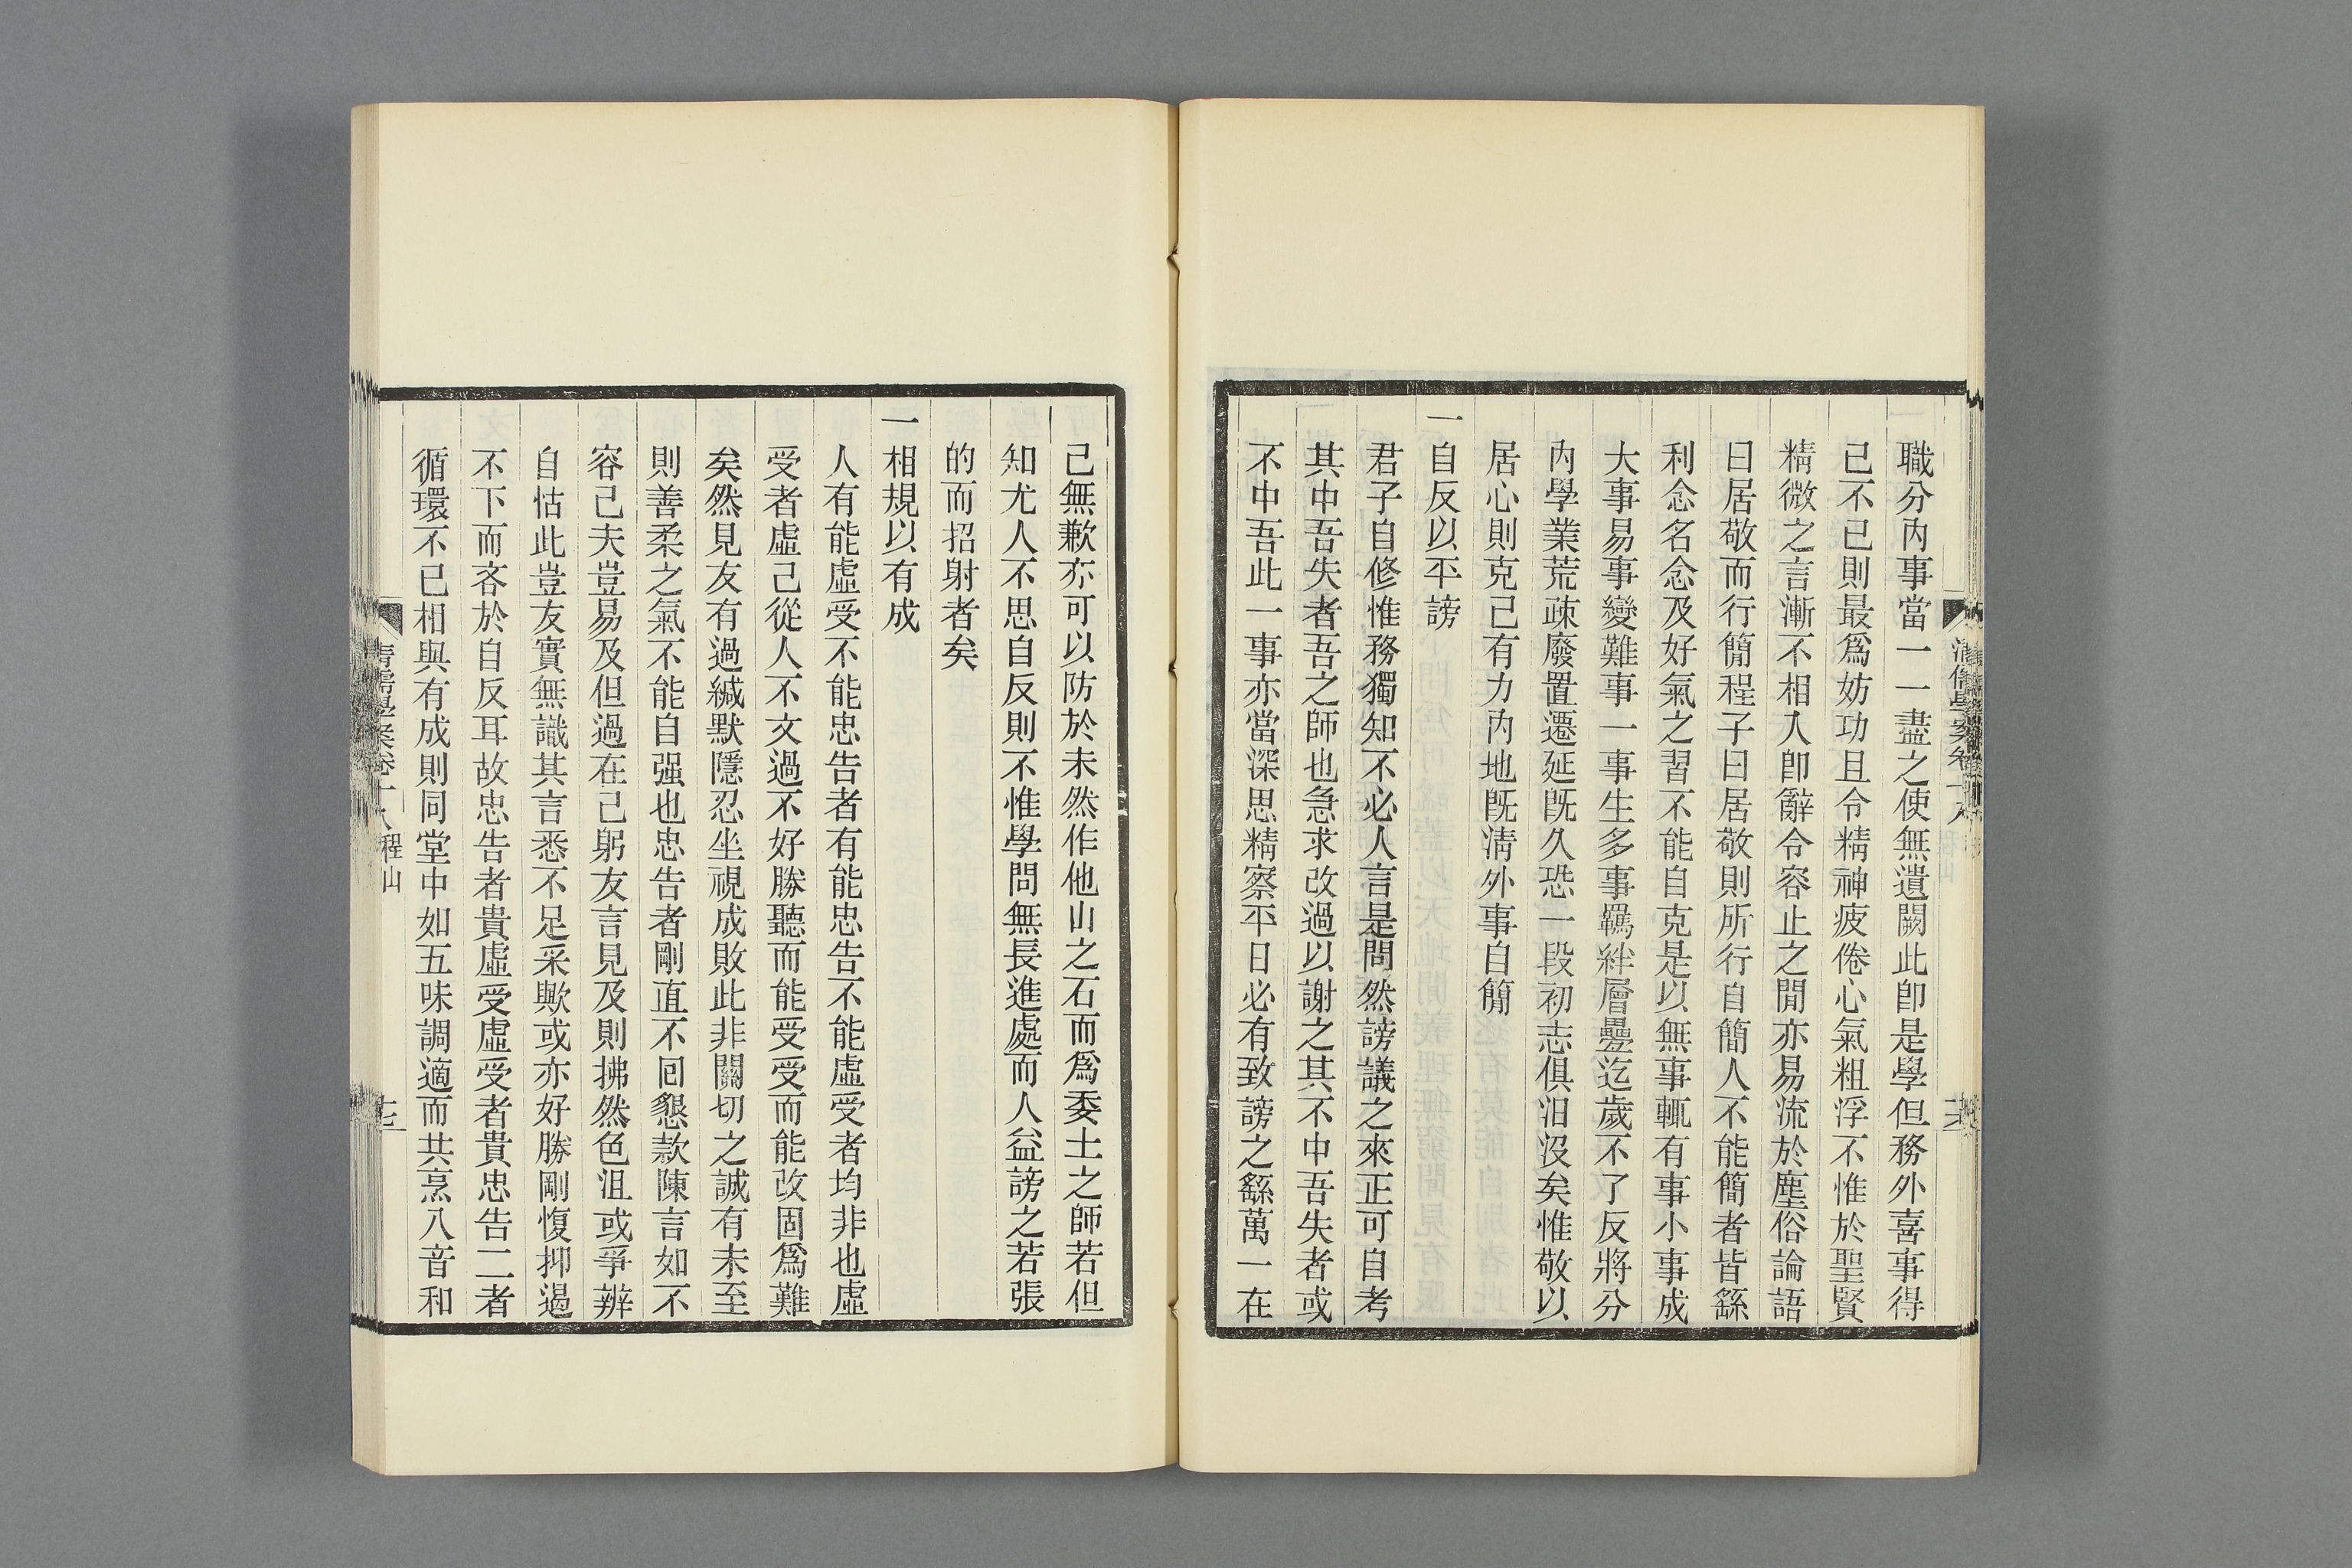 職分內事當一一盡之使無遺闕此卽是學但務外喜事得
已不已則最爲妨功且令精神疲倦心氣粗浮不惟於聖賢
精微之言漸不相入卽辭令容止之閒亦易流於塵俗論語
曰居敬而行簡程子曰居敬則所行自簡人不能簡者皆繇
利念名念及好氣之習不能自克是以無事輒有事小事成
大事易事變難事一事生多事羈絆層疊迄歲不了反將分
內學業荒疎廢置遷延旣久恐一段初志俱汨沒矣惟敬以
居心則克己有力內地旣淸外事自簡
一自反以平謗
君子自修惟務獨知不必人言是問然謗議之來正可自考
其中吾失者吾之師也急求改過以謝之其不中吾失者或
不中吾此一事亦當深思精察平日必有致謗之繇萬一在
己無歉亦可以防於未然作他山之石而爲委土之師若但
知尤人不思自反則不惟學問無長進處而人益謗之若張
的而招射者矣
一相規以有成
人有能虛受不能忠告者有能忠告不能虛受者均非也虛
受者虛己從人不文過不好勝聽而能受受而能改固爲難
矣然見友有過緘默隱忍坐視成敗此非關切之誠有未至
則善柔之氣不能自强也忠告者剛直不回懇款陳言如不
容己夫豈易及但過在己躬友言見及則拂然色沮或爭辨
自怙此豈友實無識其言悉不足采歟或亦好勝剛愎抑遏
不下而吝於自反耳故忠告者貴虛受虛受者貴忠告二者
循環不已相與有成則同堂中如五味調適而共烹八音和
淸儒學案卷十八 程山
十七